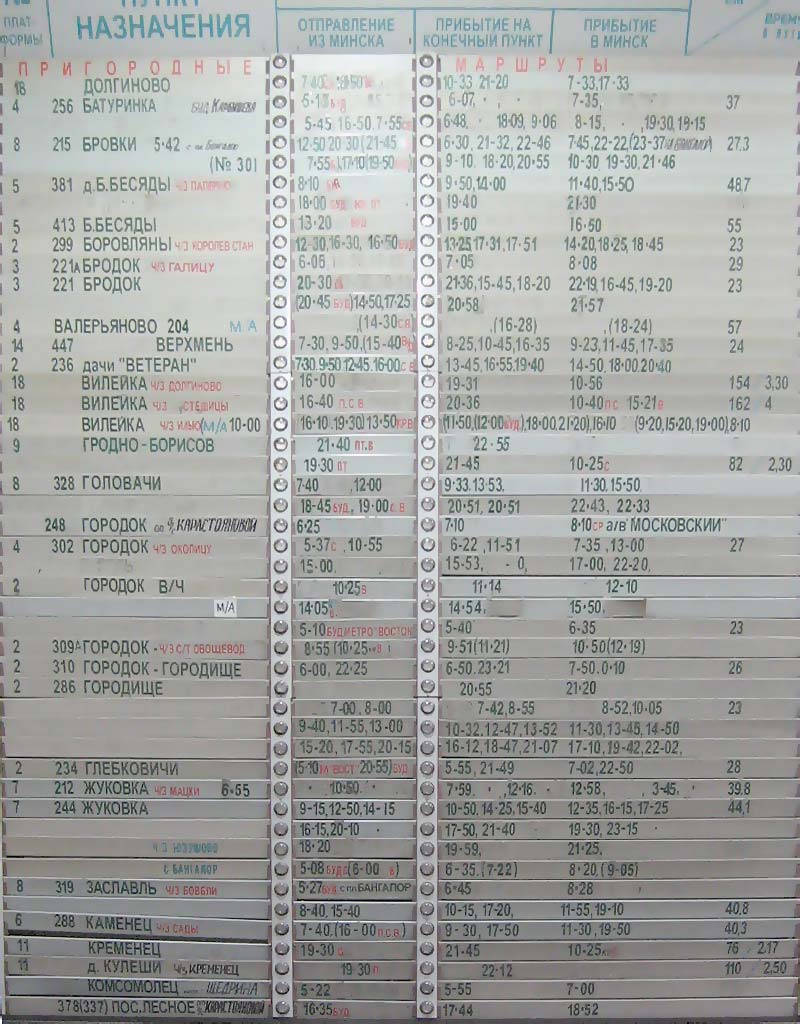 ПЛАТ-
ФОРМЫ
НАЗНАЧЕНИЯ
ОТПРАВЛЕНИЕ
ИЗ МИНСКА
ПРИБЫТИЕ НА
КОНЕЧНЫЙ ПУНКТ
ПРИБЫТИЕ
В МИНСК
ПРИГОРОДНЫЕ МАРШРУТЫ
18 ДОЛГИНОВО 7-40 10-33 21-20 7-33,17-33
4 256 БАТУРИНКА 6-07, 7-35, 37
5-45,16-50,7-55 6-48, 18-09, 9-06 8-15, ,19-30,18-15
8 215 БРОВКИ 5-42 12-50 20-30(21-45 6-30, 21-32, 22-46 7-45,22-22,(23-37 27,3
(№ 301 7-55 ),17-10(19-50) 9-10, 18-20,20-55 10-30 19-30,21-46
5 381 д.Б.БЕСЯДЫ 8-10 9-50,14-00 11-40,15-50 48,7
18-00 БУД 19-40 21-30
5 413 Б.БЕСЯДЫ 13-20 15-00 16-50 55
2 299 БОРОВЛЯНЫ Ч/З КОРОЛЕВ СТАН 12-30,16-30, 16-50 13-25,17-31,17-51 14-20,18-25, 18-45 23
3 221А БРОДОК Ч/З ГАЛИЦУ 6-05 7-05 8-08 29
3 221 БРОДОК 20-30 21-36,15-45,18-20 22-19,16-45,19-20 23
(20-45 БУД)14-50,17-25 20-58 21-57
4 ВАЛЕРЬЯНОВО 204 М/А ,(14-30СВ) ,(16-28) ,(18-24) 57
14 447 ВЕРХМЕНЬ 7-30, 9-50,(15-40 8-25,10-45,16-35 9-23,11-45,17-35 24
2 236 дачи "ВЕТЕРАН" 7-30,9-50,12-45,16-00 С.В 13-45,16-55,19-40 14-50,18-00,20-40
18 ВИЛЕЙКА Ч/З ДОЛГИНОВО 16-00 19-31 10-56 154 3,30
18 ВИЛЕЙКА Ч/З 16-40 П.С.В 20-36 10-40 П.С 15-21 В 162 4
18 ВИЛЕЙКА Ч/З ИЛЬЮ(М/А)10-00 16-10,19-30)13-50 (11-50,(12-00 БУД),18-00,21-20),16-10 (9-20,15-20,19-00),8-10
9 ГРОДНО-БОРИСОВ 21-40 ПТ.В 22-55
19-30 ПТ 21-45 10-25С 82 2,30
8 328 ГОЛОВАЧИ 7-40 ,12-00 9-33,13-53, 11-30,15-50,
18-45 БУД, 19-00 С.В 20-51, 20-51 22-43, 22-33
248 ГОРОДОК КАРАСТОЯНОВОЙ 6-25 7-10 8-10 СР а/в"МОСКОВСКИЙ"
4 302 ГОРОДОК Ч/З ОКОЛИЦУ 5-37С ,10-55 6-22 ,11-51 7-35 ,13-00 27
15-00, 15-53, 17-00, 22-20,
2 ГОРОДОК В/Ч 10-25В 11-14 12-10
М/А 14-05 14-54, 15-50,
5-10 БУД МЕТРО "ВОСТОК 5-40 6-35 23
2 309А ГОРОДОК - Ч/З С/Т ОВОЩЕВОД 8-55 (10-25 ) 9-51(11-21) 10-50(12-19)
2 310 ГОРОДОК - ГОРОДИЩЕ 6-00, 22-25 6-50,23-21 7-50,0-10 26
2 286 ГОРОДИЩЕ 20-55 21-20
7-00, 8-00 7-42,8-55 8-52,10-05 23
9-40,11-55,13-00 10-32,12-47,13-52 11-30,13-45,14-50
15-20, 17-55,20-15 16-12,18-47,21-07 17-10,19-42,22-02,
2 234 ГЛЕБКОВИЧИ (5-10 М"ВОСТ. 20-55)БУД 5-55, 21-49 7-02,22-50 28
7 212 ЖУКОВКА Ч/З МАЦКИ 6-55 10-50, 7-59, ,12-16, 12-58, 3-45, 39,8
7 244 ЖУКОВКА 9-15,12-50,14-15 10-50,14-25,15-40 12-35,16-15,17-25 44,1
16-15,20-10 17-50, 21-40 19-30, 23-15
Ч/З ЮЗУФОВО 18-20 19-59, 21-25,
С БАНГАЛОР 5-08 БУДС(6-00 В) 6-35, (7-22) 8-20, (9-05)
8 319 ЗАСЛАВЛЬ Ч/З БОВБЛИ 5-27 БУД с пл БАНГАЛОР 6-45 8-28
8-40, 15-40 10-15, 17-20, 11-55,19-10 40,8
6 288 КАМЕНЕЦ Ч/З САДЫ 7-40,(16-00П.С.В) 9-30, 17-50 11-30,19-50 40,3
11 КРЕМЕНЕЦ 19-30 21-45 10-25 76 2,17
11 д. КУЛЕШИ Ч/З КРЕМЕНЕЦ 19-30 П 22-12 110 2,50
КОМСОМОЛЕЦ ЩЕДРИНА 5-22 5-55 7-00
378(337) ПОС.ЛЕСНОЕ КАРАСТОЯНОВОЙ 16-35 БУД 17-44 18-52